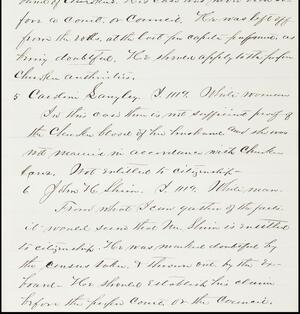 for a court, or Council. He was left off
from the rolls, at the last per capita
being doubtful. He should apply to the proper
Cherokee authorities.
5 Langley. I. M'g. White woman
In this case there is not sufficient proof of
the Cherokee blood of her husband and she was
not married in accordance with Cherokee
laws. Not entitled to citizenship—
6 John H. I. M'g. White man.
From what I can gather of the facts
it would seem that Mr. is entitled
to citizenship. He was marked doubtful by
the census taker, & thrown out by the Ex-
board— He should establish his claim
before the proper Court, or the Council.